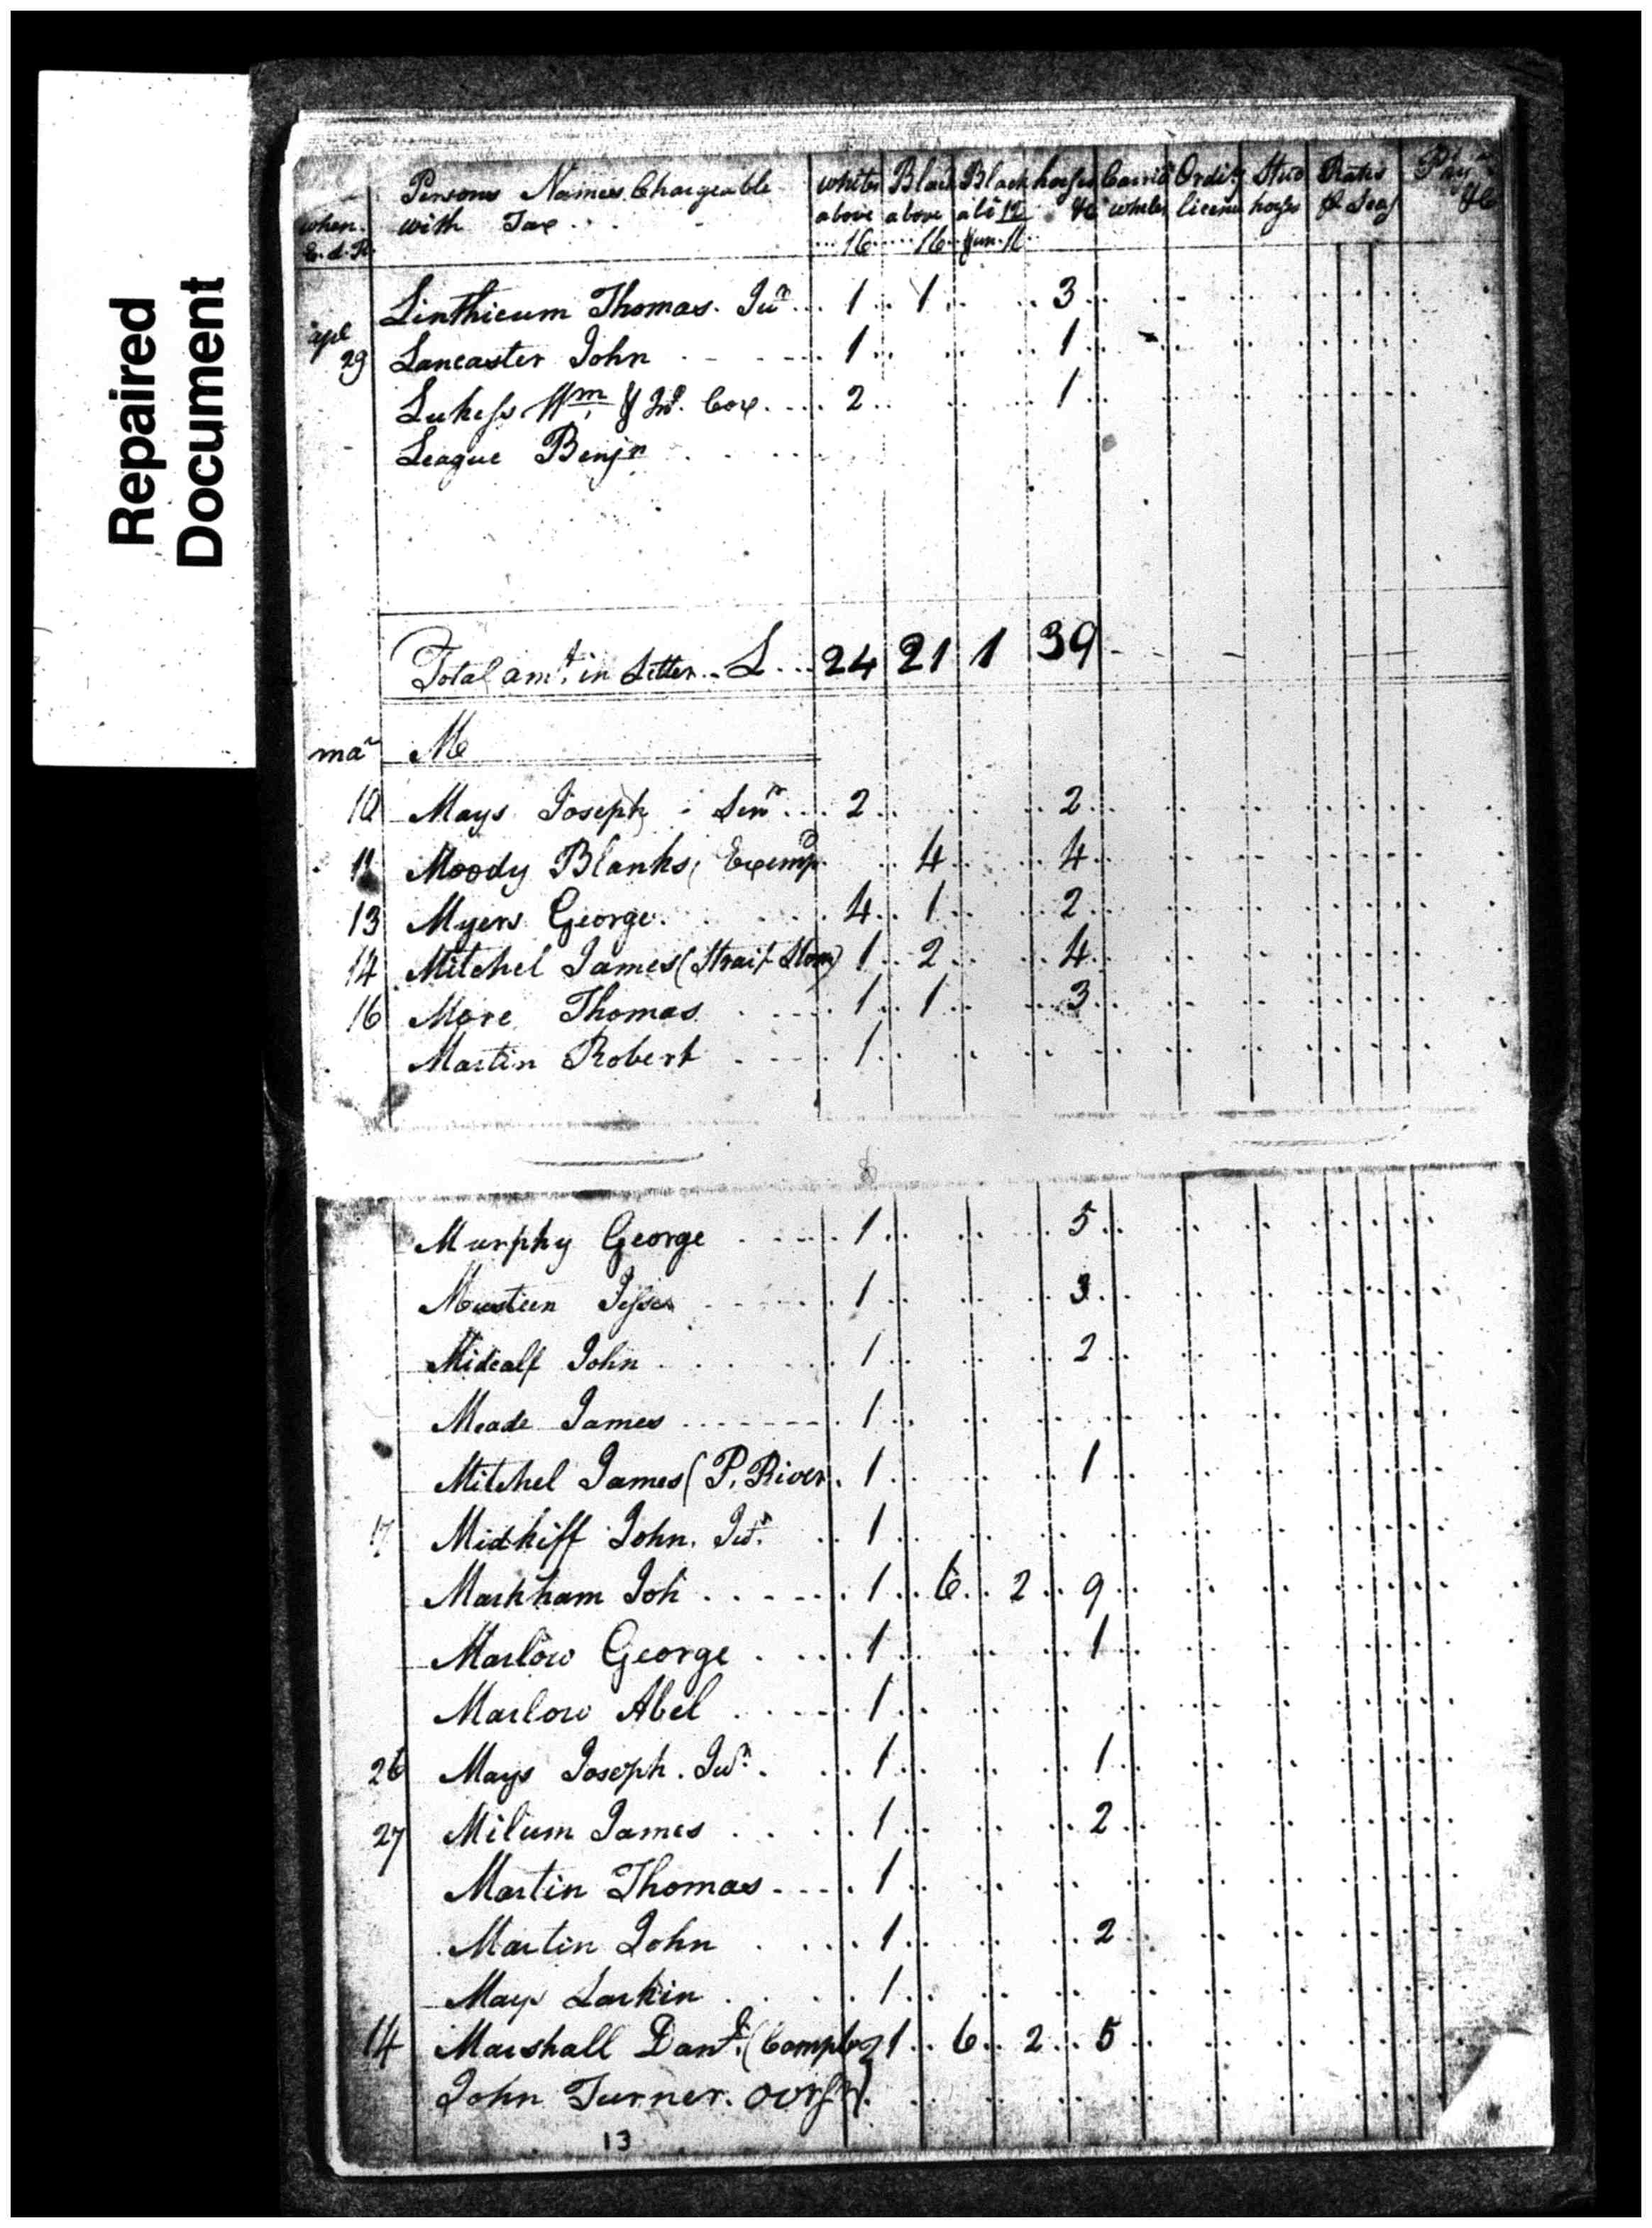 Repaired
Document
Persons Names Chargeable whites Black Black horses Carri Ordiy Stud Rates Phy
when with Tax above above abo 12 &c wheles licene horses & Seas &c
16 16 & un. 16
Linthicum Thomas. Junr 1 1 3
apl
29 Lancaster John 1 1
Lukess Wm & Jno. Cox 2 1
League Benjn
Total amt. in Letter L 24 21 1 39
mar M
10 Mays Joseph Senr 2 2
11 Moody Blanks, Exempd 4 4
13 Myers George 4 1 2
14 Mitchel James (Strait Stone) 1 2 4
16 More Thomas 1 1 3
Martin Robert 1
Murphy George 1 5
Musteen Jesse 1 3
Midcalf John 1 2
Meade James 1
Mitchel James (P. River 1 1
17 Midkiff John. Jur. 1
Markham Joh 1 6 2 9
Marlow George 1 1
Marlow Abel 1
26 Mays Joseph. Junr. 1 1
27 Milum James 1 2
Martin Thomas 1
Martin John 1 2
Mays Larkin 1
14 Marshall Danl. (Campbe 1 6 2 5
John Turner. ovrsr)
13